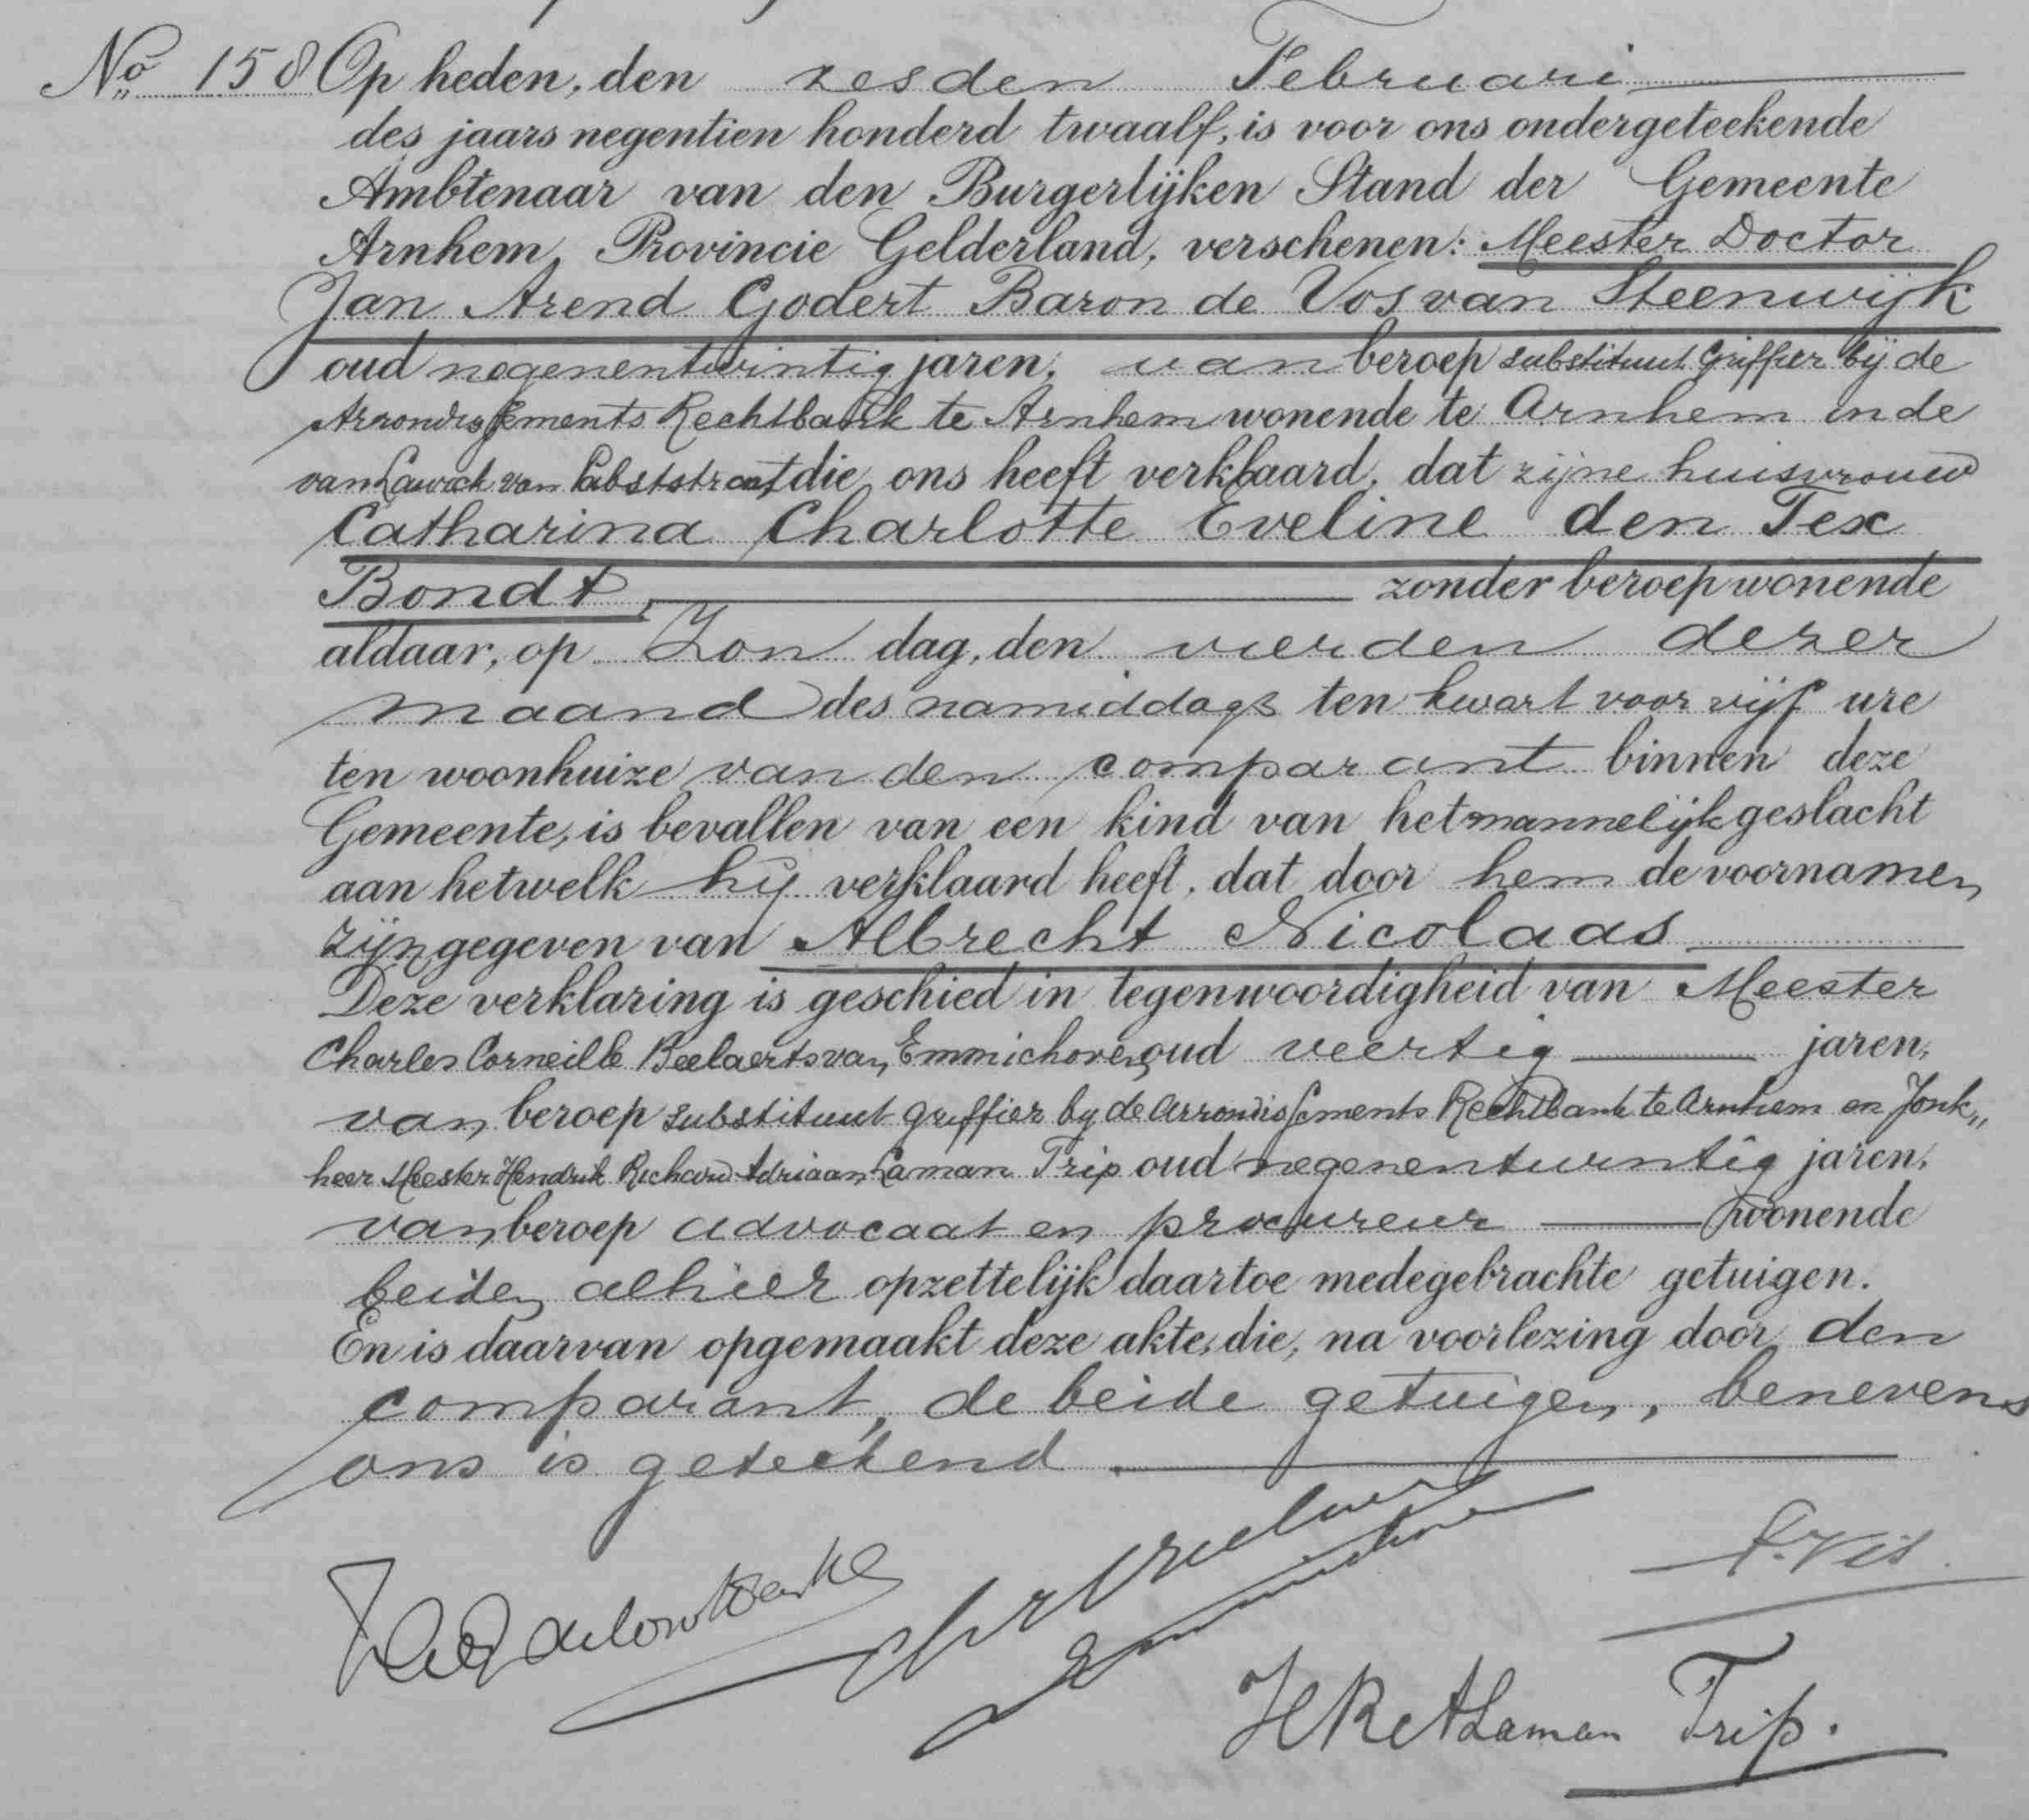 No 158 Op heden, den zesden Februari
des jaars negentien honderd twaalf, is voor ons ondergeteekende
Ambtenaar van den Burgerlijken Stand der Gemeente
Arnhem, Provincie Gelderland, verschenen: Meester Doctor
Jan Arend Godert Baron de Vos van Steenwijk
oud negenentwintig jaren, van beroep substituut Griffier bij de
Arrondissements Rechtbank te Arnhem wonende te Arnhem in de
van Lawick van Pabststraat die ons heeft verklaard, dat zijne huisvrouw
Catharina Charlotte Eveline den Tex
Bondt, zonder beroep wonende
aldaar, op Zon dag, den vierden dezer
maand des namiddags ten kwart voor vijf ure
ten woonhuize van den comparant binnen deze
Gemeente, is bevallen van een kind van het mannelijk geslacht
aan hetwelk hij verklaard heeft, dat door hem de voornamen
zijn gegeven van Albrecht Nicolaas
Deze verklaring is geschied in tegenwoordigheid van Meester
Charles Corneille Beelaerts van Emmichoven, oud veertig jaren,
van beroep substituut griffier bij de Arrondissements Rechtbank te Arnhem en Jonk„
heer Meester Hendrik Richard Adriaan Laman Trip oud negenentwintig jaren,
van beroep advocaat en procureur wonende
beiden alhier opzettelijk daartoe medegebrachte getuigen.
En is daarvan opgemaakt deze akte, die, na voorlezing door den
comparant, de beide getuigen, benevens
ons is geteekend.
HRALaman Trip.